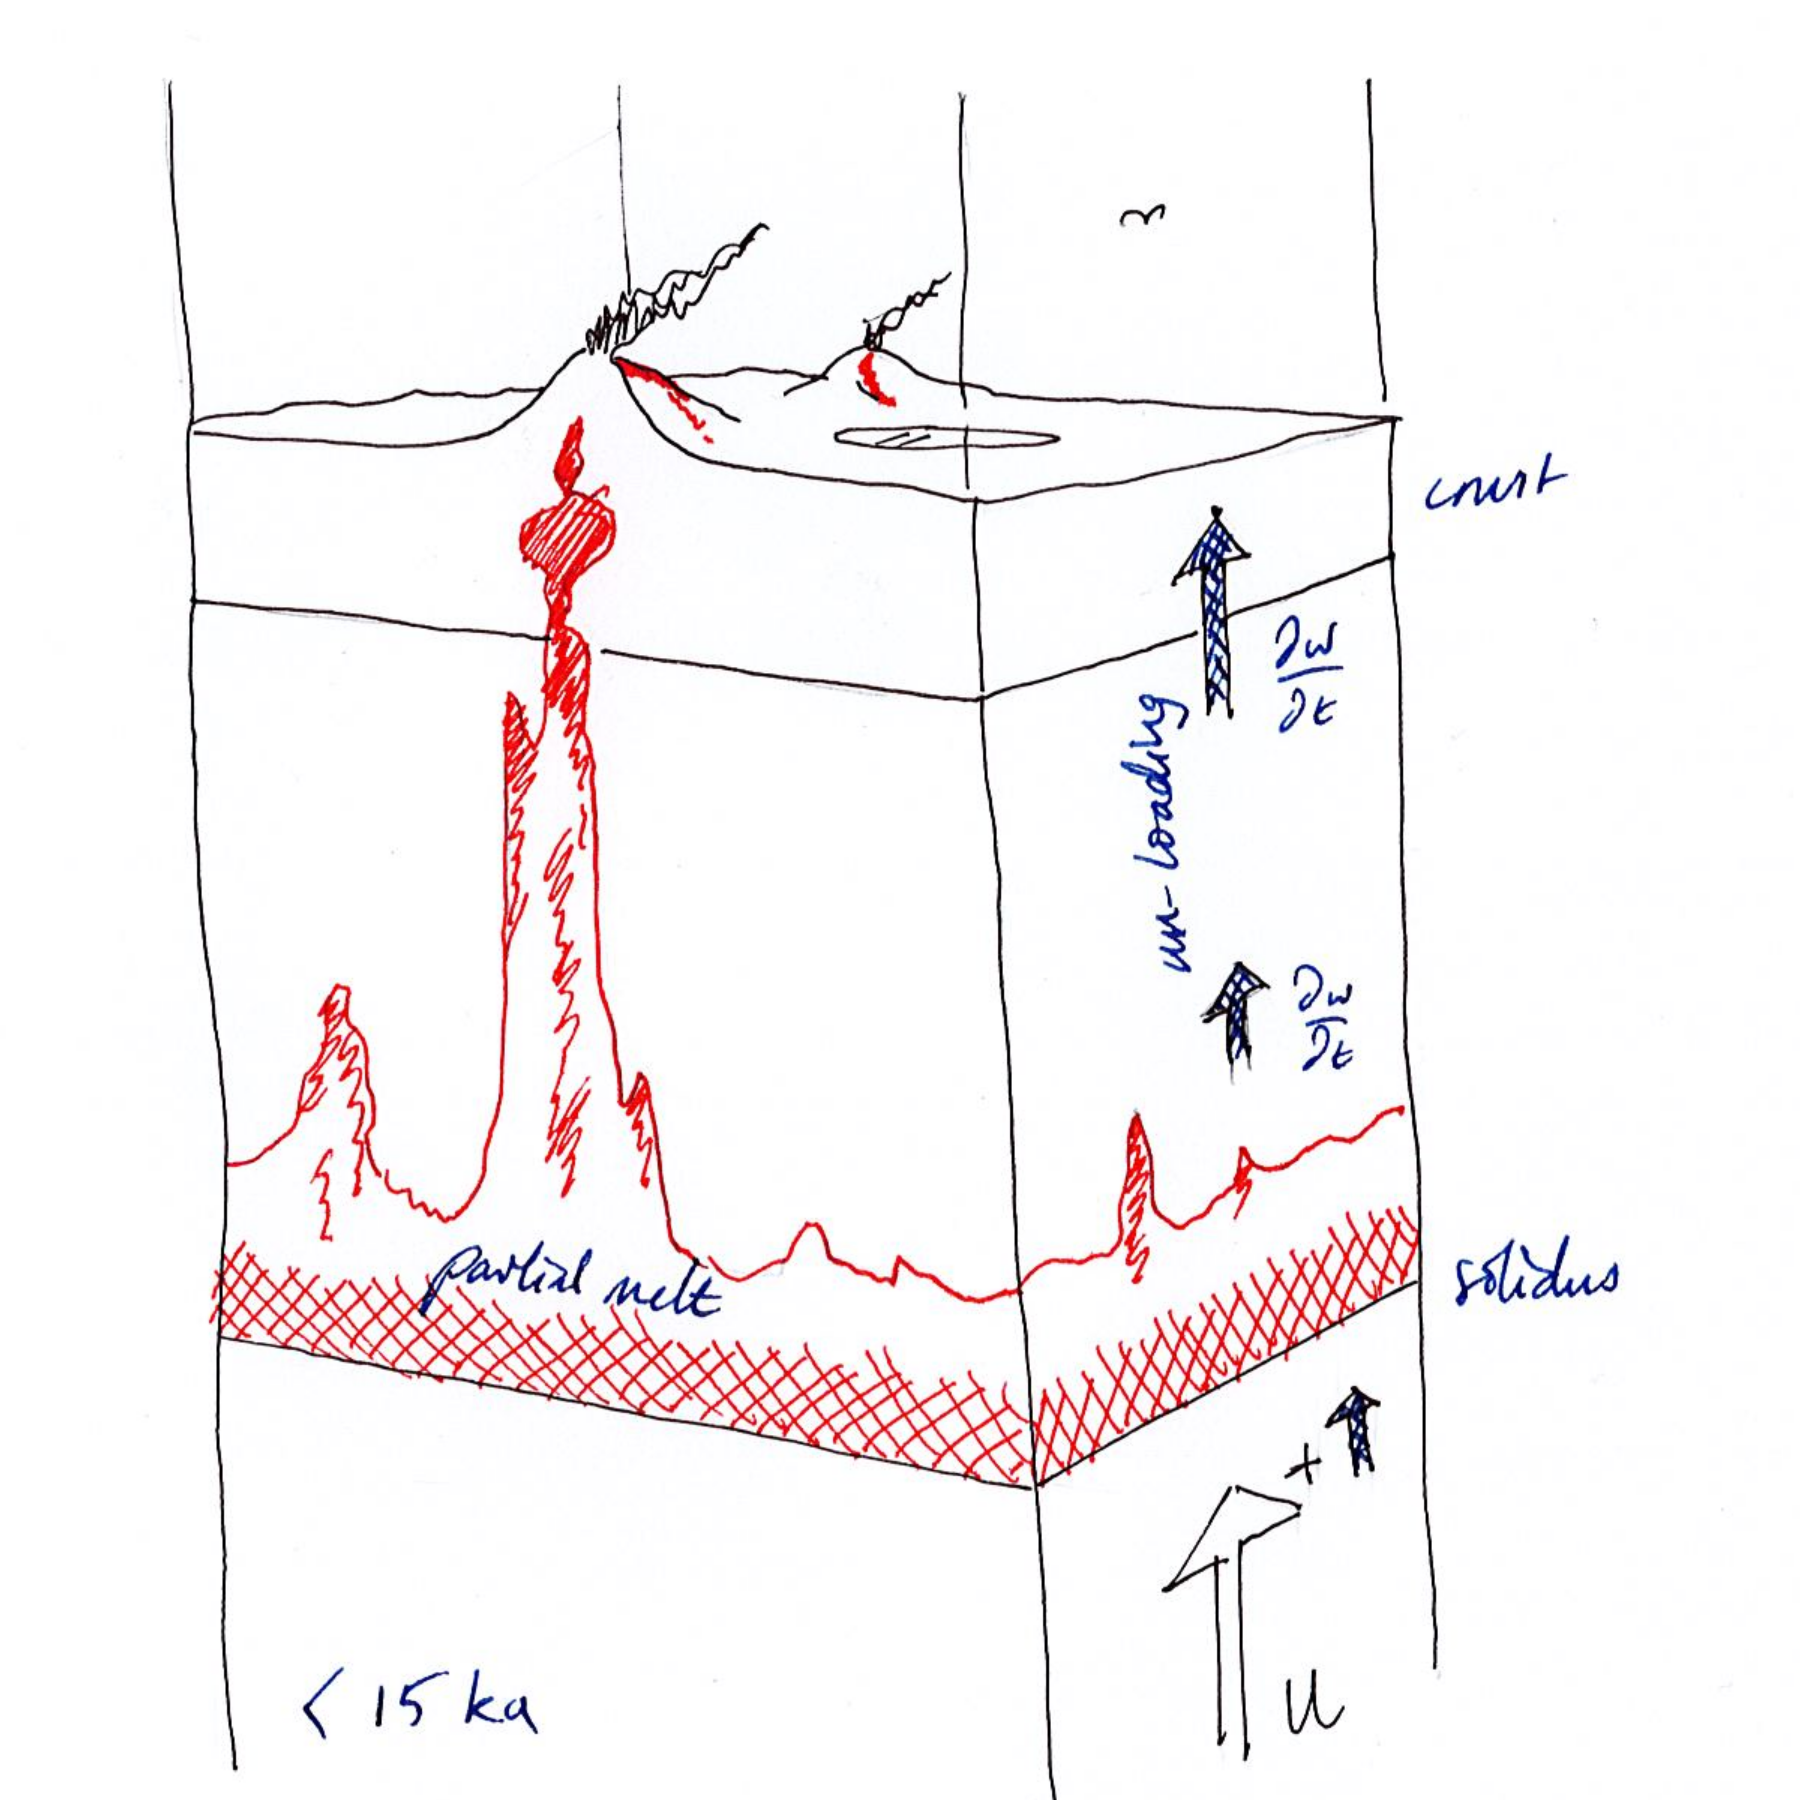 crust
∂w
∂t
un-loading
∂w
∂t
partial melt
solidus
+
< 15 ka
U